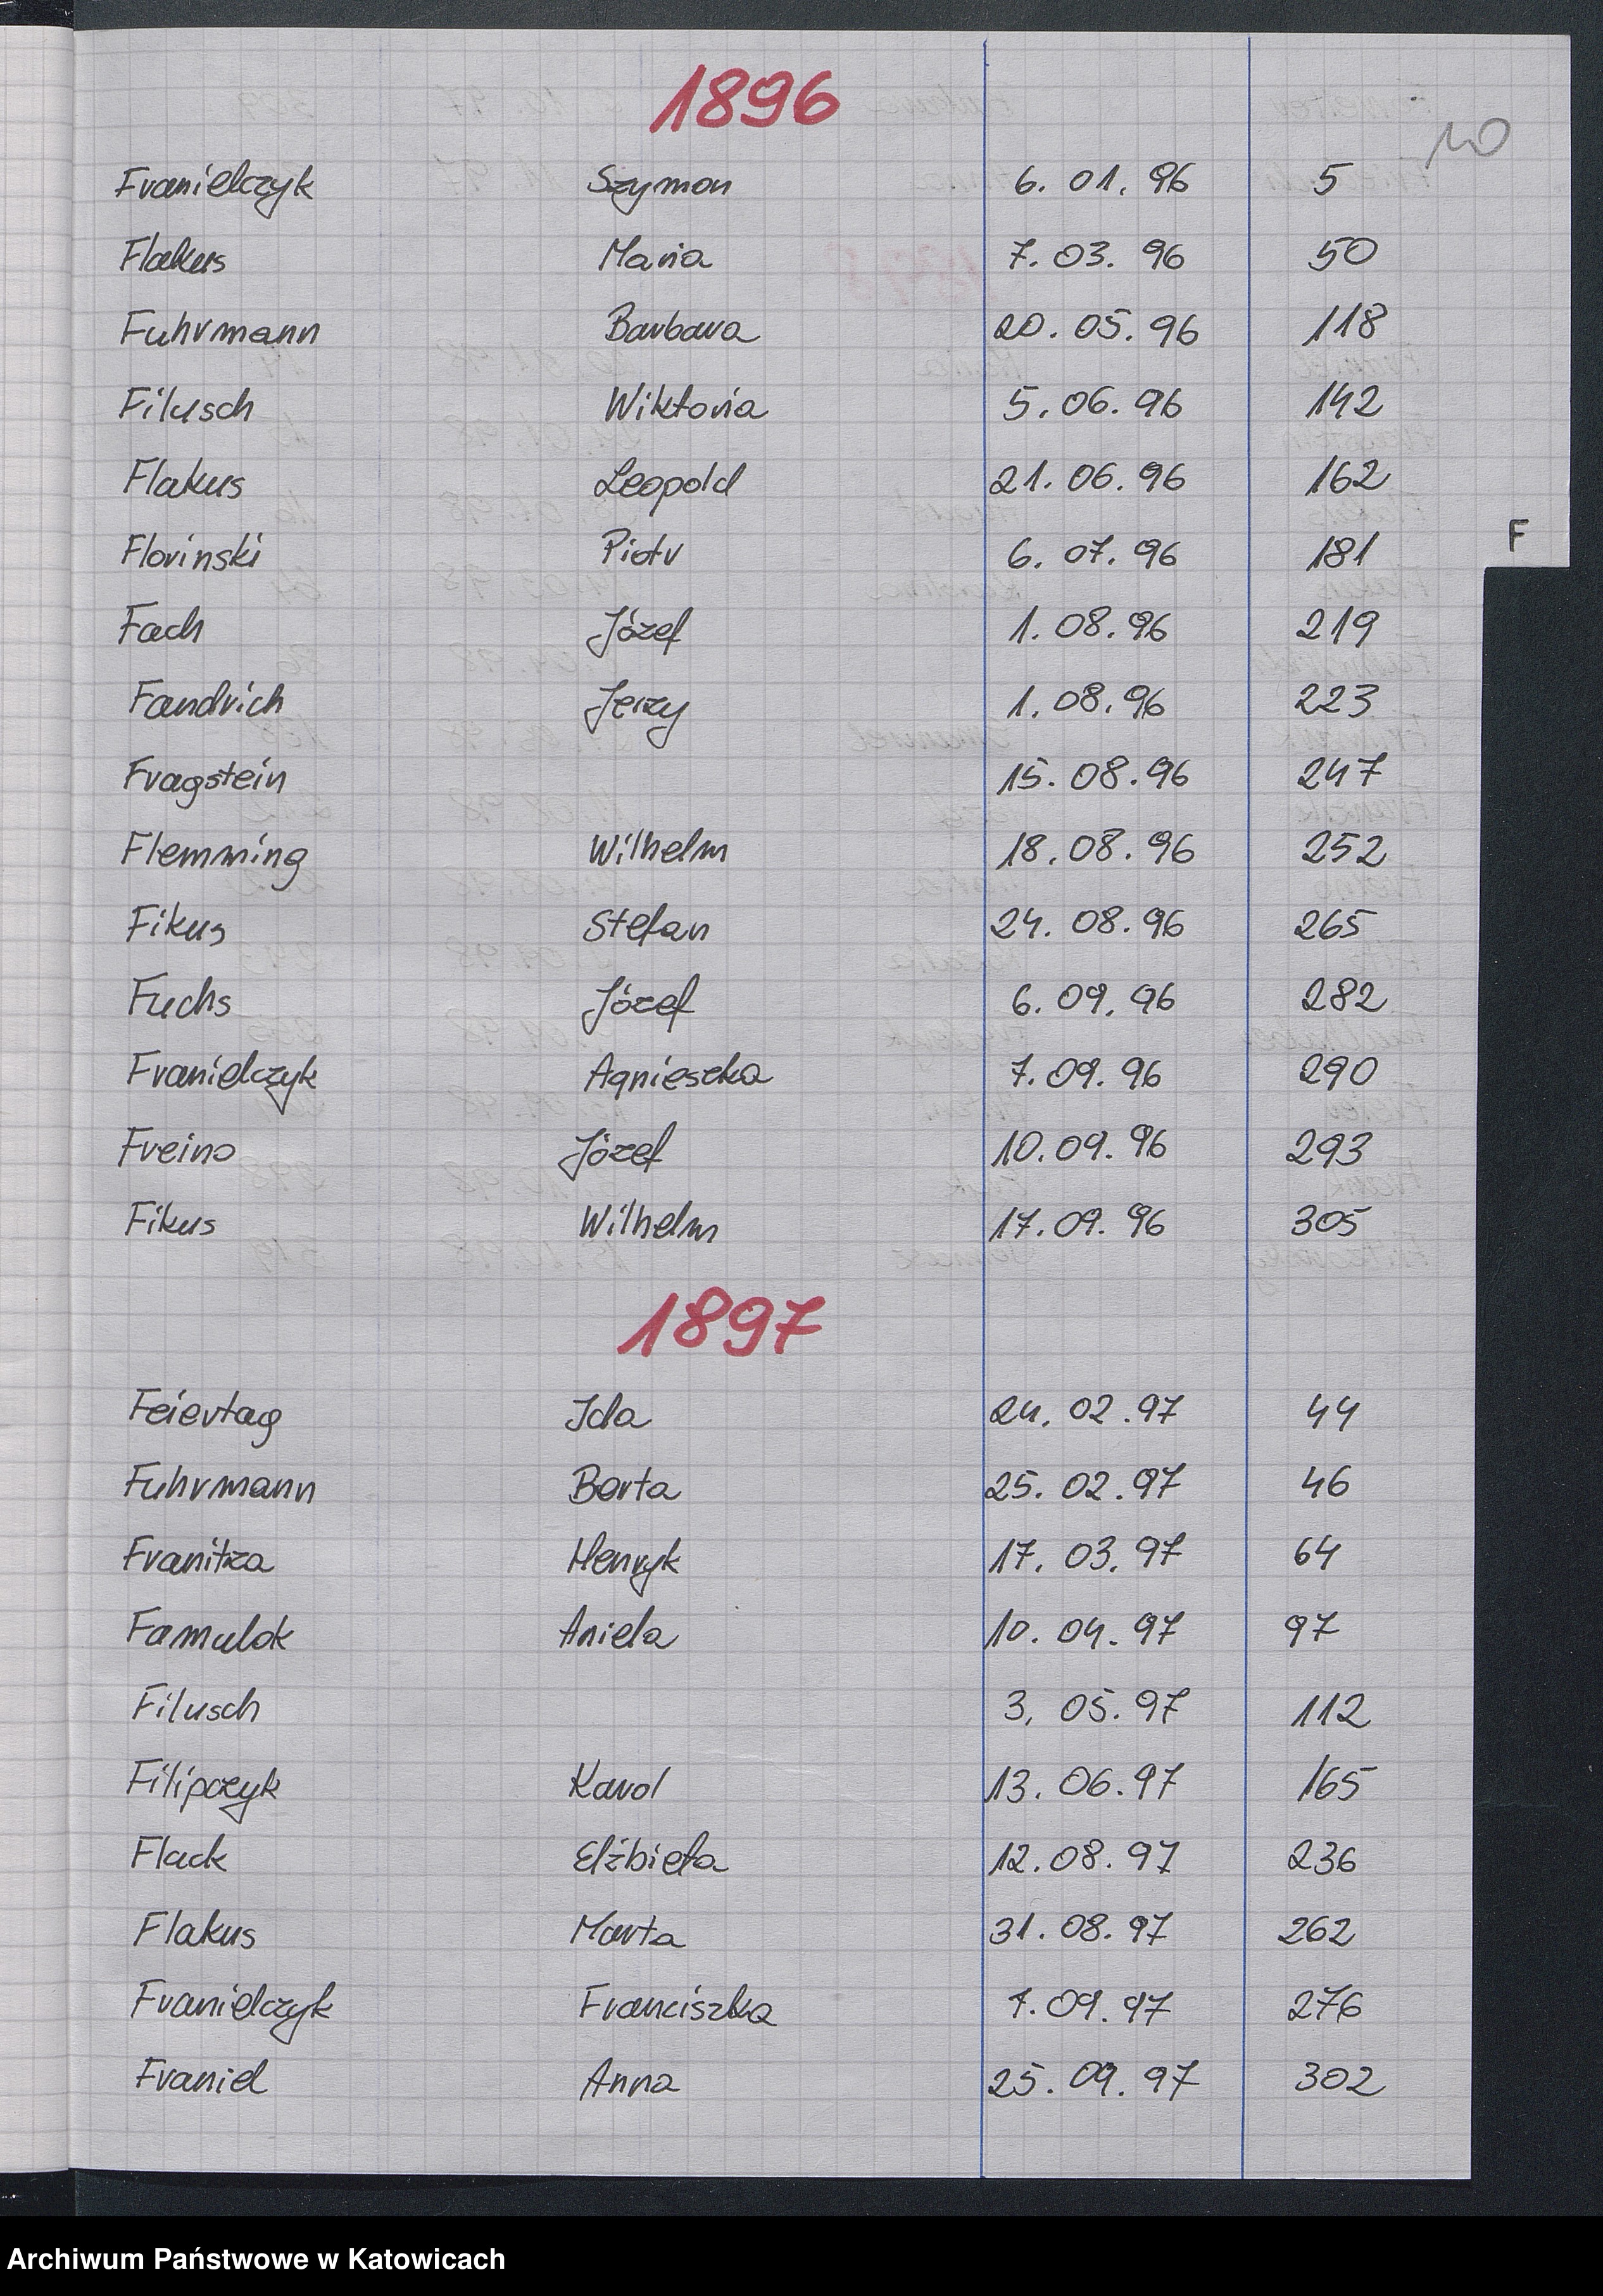 1896
10
Franielczyk Szymon 6. 01. 96 5
Flakus Maria 7. 03. 96 50
Fuhrmann Barbara 20. 05. 96 118
Filusch Wiktoria 5. 06. 96 142
Flakus Leopold 21. 06. 96 162
F
Florinski Piotr 6. 07. 96 181
Fach Józef 1. 08. 96 219
Fandrich Jerzy 1. 08. 96 223
Fragstein 15. 08. 96 247
Flemming Wilhelm 18. 08. 96 252
Fikus Stefan 24. 08. 96 265
Fuchs Józef 6. 09. 96 282
Franielczyk Agnieszka 7. 09. 96 290
Freino Józef 10. 09. 96 293
Fikus Wilhelm 17. 09. 96 305
1897
Feiertag Ida 24. 02. 97 44
Fuhrmann Berta 25. 02. 97 46
Franitza Henryk 17. 03. 97 64
Famulok Aniela 10. 04. 97 97
Filusch 3. 05. 97 112
Filipczyk Karol 13. 06. 97 165
Flack Elżbieta 12. 08. 97 236
Flakus Marta 31. 08. 97 262
Franielczyk Franciszka 7. 09. 97 276
Franiel Anna 25. 09. 97 302
Archiwum Państwowe w Katowicach